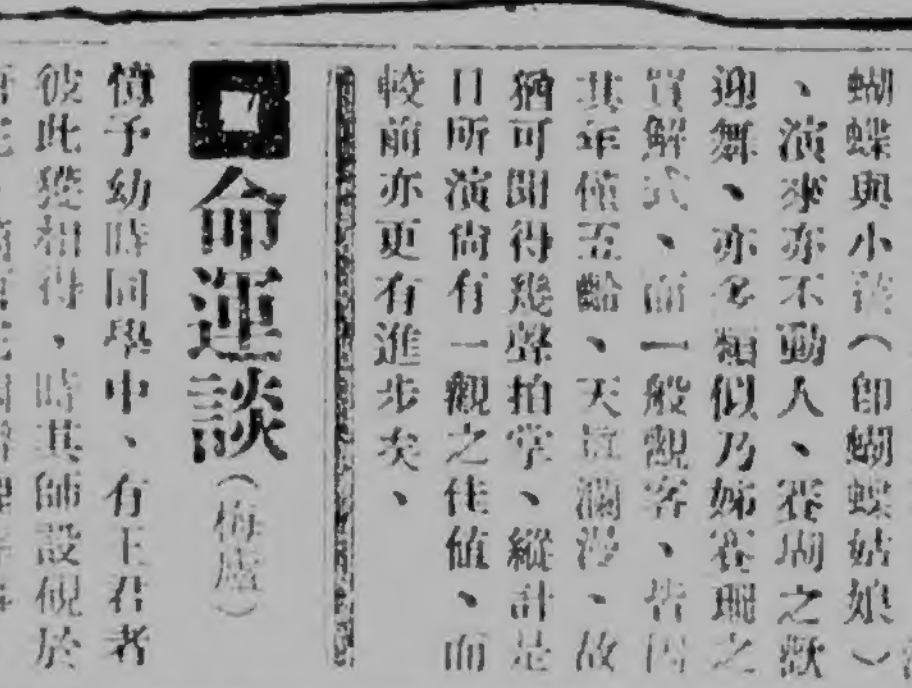 蝴蝶與小孩（即蝴蝶姑娘）
、演來亦不動人、瑚之獻
迎舞、亦多類似乃姊之
買解式、而一般觀客、皆因
其年僅五齡、天真瀾漫、故
猶可聞得幾聲拍掌、縱計是
日所演尙有一觀之佳値、而
較前亦更有進步矣、
命運談（梅盧）
憶予幼時同學中、有王君者
彼此獎相得、時其師設硯於